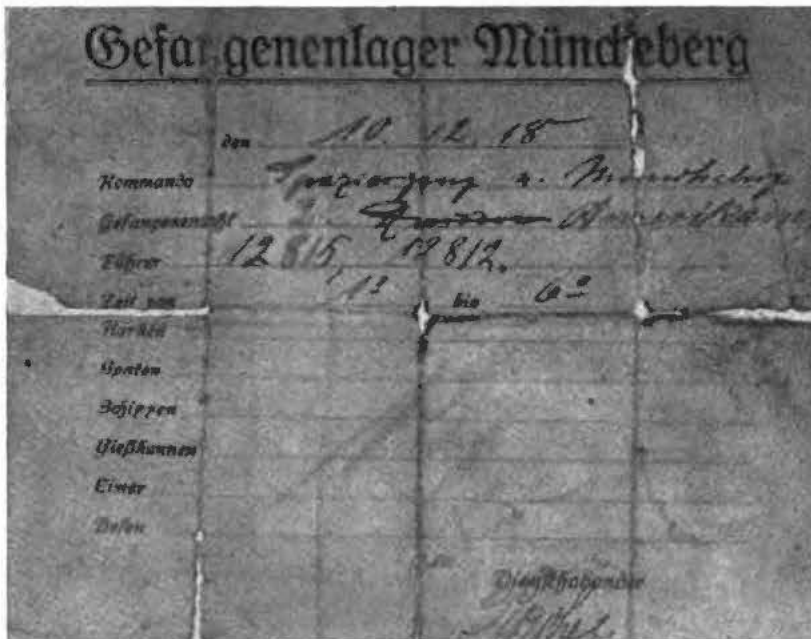 Gefangenenlager Müncheberg
den 10. 12. 18
Kommando Spaziergang n. Müncheberg
Gefangenenzahl 2 Amerikaner
Führer 12815, 12812.
Zeit von 1º bis 6º
Harken
Spaten
Schippen
Gießkannen
Eimer
Besen
Diensthabender